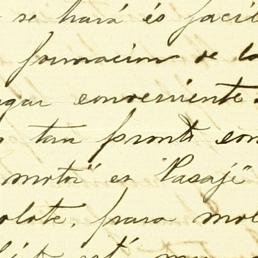 se hará és facil
formacion de la
lugar conveniente
tan pronto con
motor" en "Pasaje"
para mol